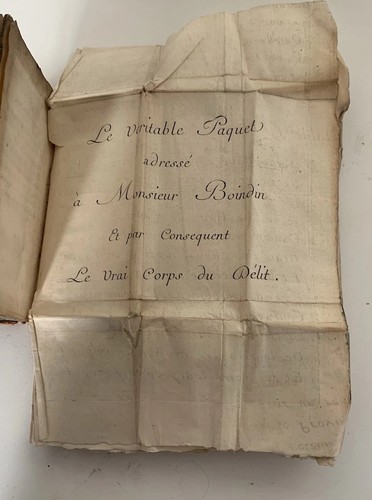 Le véritable Paquet
adressé
à Monsieur Boindin
Et par Consequent
Le vrai Corps du Délit.